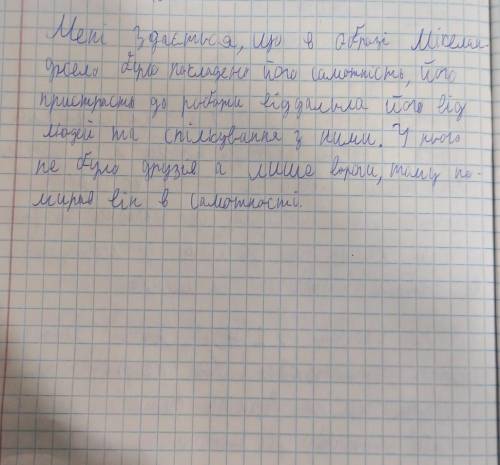 Мені здається, що в образі Мікелан-
джело було покладено його самотність, його
пристрасть до роботи віддалила його від
людей та спілкування з ними. У нього
не було друзів а лише вороги, тому по-
мирав він в самотності.